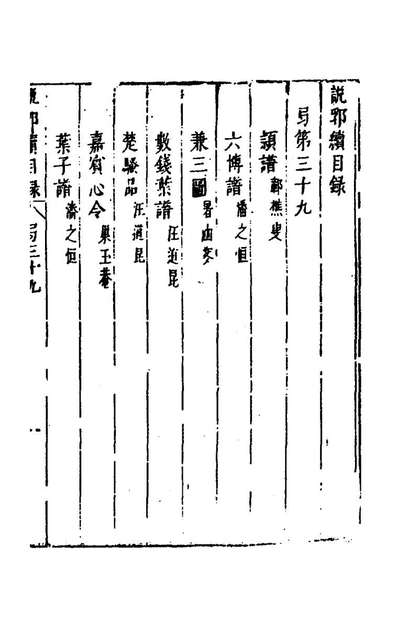 說郛續目録
弓第三十九
頴譜 鄞樵叟
六博譜 潘之恒
兼三圖 屠幽叟
數錢葉譜 汪道昆
楚騷品 汪道昆
嘉賓心令 巢玉菴
葉子譜 潘之恒
說郛續目録 弓三十九 一